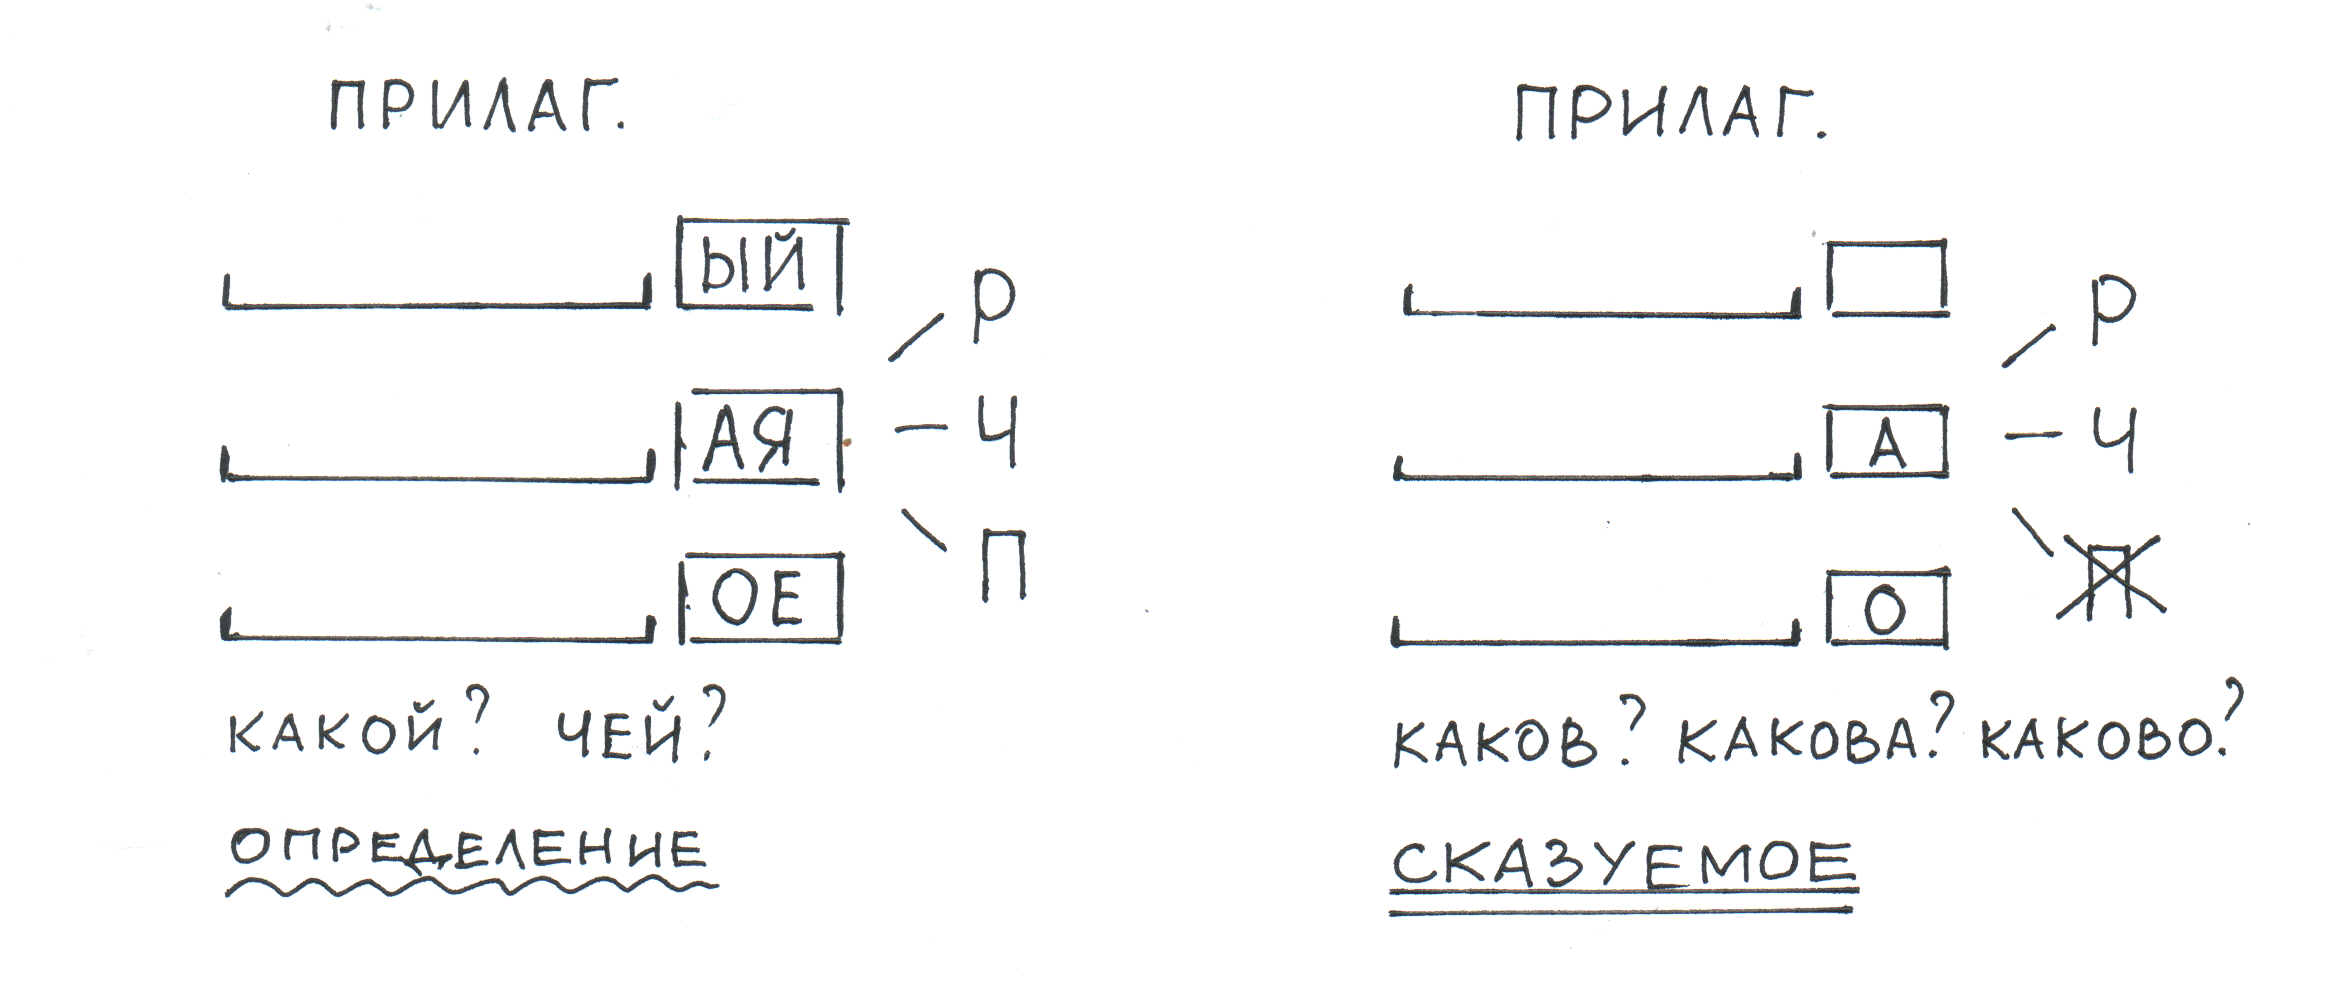 ПРИЛАГ.
ЫЙ
АЯ
ОЕ
Р
Ч
П
КАКОЙ? ЧЕЙ?
ОПРЕДЕЛЕНИЕ
ПРИЛАГ.
А
О
Р
Ч
П
КАКОВ? КАКОВА? КАКОВО?
СКАЗУЕМОЕ